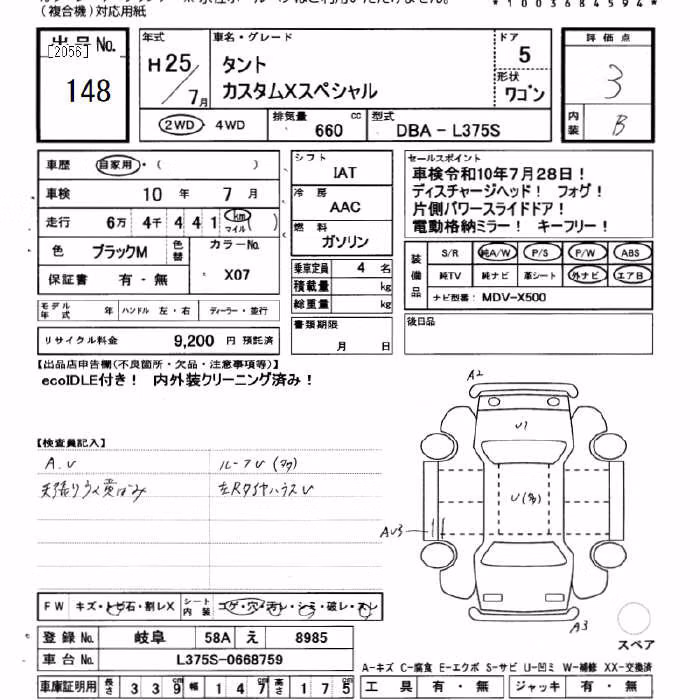 (複合機)対応用紙
*1003684594*
出品No.
[2056]
148
年式
H25/7月
車名・グレード
タント
カスタムXスペシャル
ドア
5
形状
ワゴン
2WD・4WD
排気量
660 cc
型式
DBA - L375S
評価点
3
内装
B
車歴 自家用・( )
車検 10年 7月
走行 6万 4千 4 4 1 km マイル( )
色 ブラックM 色替
カラーNo.
X07
保証書 有・無
モデル年式 年 ハンドル 左・右 ディーラー・並行
リサイクル料金 9,200 円 預託済
シフト
IAT
冷房
AAC
燃料
ガソリン
乗車定員 4 名
積載量 kg
総重量 kg
書類期限
月 日
セールスポイント
車検令和10年7月28日!
ディスチャージヘッド! フォグ!
片側パワースライドドア!
電動格納ミラー! キーフリー!
装備品
S/R 純A/W P/S P/W ABS
純TV 純ナビ 革シート 外ナビ エアB
ナビ型番: MDV-X500
後日品
【出品店申告欄(不良箇所・欠品・注意事項等)】
ecoIDLE付き! 内外装クリーニング済み!
【検査員記入】
A.U
ルーフU(多)
天張りウス黄ばみ
A2
U1
U(多)
AU3
A3
スペア
FW キズ・トビ石・割レX
シート内装 コゲ・穴・汚レ・シミ・破レ・スレ
登録No. 岐阜 58A え 8985
車台No. L375S-0668759
車庫証明用 長さ 339cm 幅 147cm 高さ 175cm
A-キズ C-腐食 E-エクボ S-サビ U-凹ミ W-補修 XX-交換済
工具 有・無 ジャッキ 有・無